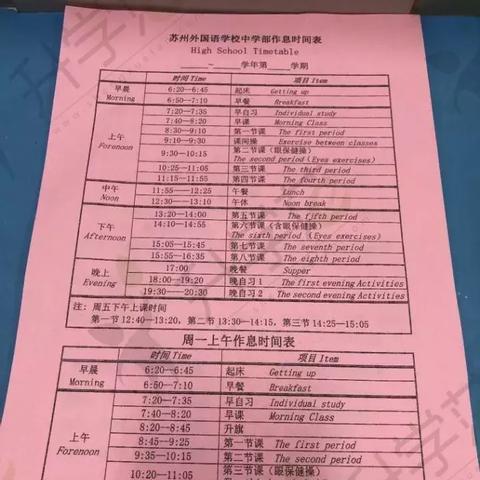 苏州外国语学校中学部作息时间表
High School Timetable
______~______学年第____学期
时间 Time 项目 Item
早晨 Morning
6:20—6:45 起床 Getting up
6:50—7:10 早餐 Breakfast
上午 Forenoon
7:20—7:35 早自习 Individual study
7:40—8:20 早课 Morning Class
8:30—9:10 第一节课 The first period
9:10—9:30 课间操 Exercise between classes
9:30—10:15 第二节课（眼保健操）
The second period (Eyes exercises)
10:25—11:05 第三节课 The third period
11:15—11:55 第四节课 The fourth period
中午 Noon
11:55—12:25 午餐 Lunch
12:30—13:10 午休 Noon break
下午 Afternoon
13:20—14:00 第五节课 The fifth period
14:10—14:55 第六节课（含眼保健操）
The sixth period (Eyes exercises)
15:05—15:45 第七节课 The seventh period
15:55—16:35 第八节课 The eighth period
晚上 Evening
17:00 晚餐 Supper
18:00—19:20 晚自习 1 The first evening Activities
19:30—20:30 晚自习 2 The second evening Activities
注：周五下午上课时间
第一节 12:40—13:20, 第二节 13:30—14:15, 第三节 14:25—15:05
周一上午作息时间表
时间 Time 项目 Item
早晨 Morning
6:20—6:45 起床 Getting up
6:50—7:10 早餐 Breakfast
上午 Forenoon
7:20—7:35 早自习 Individual study
7:40—8:20 早课 Morning Class
8:20—8:45 升旗
8:45—9:25 第一节课 The first period
9:35—10:15 第二节课 The second period
10:20—11:05 第三节课（眼保健操）